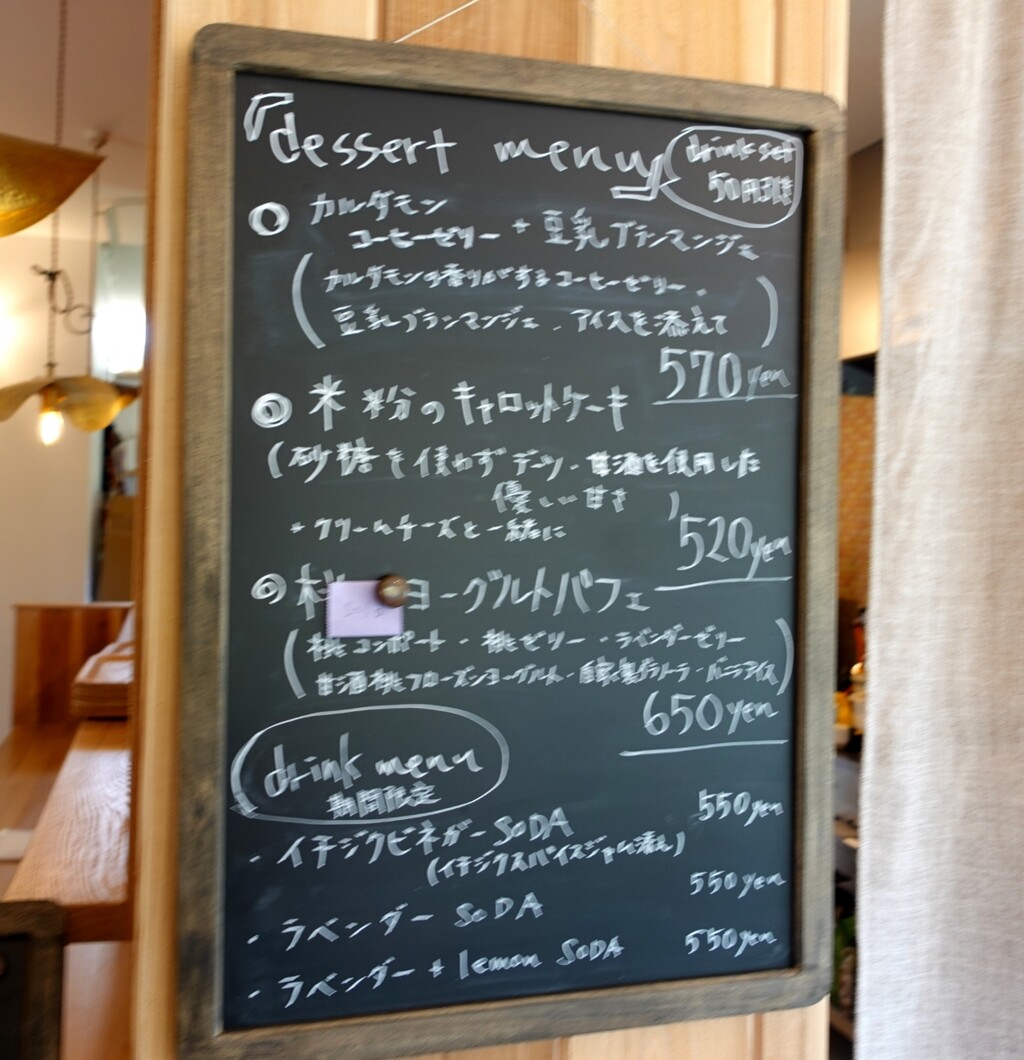 『dessert menu』
drink set
50円引き
◎ カルダモン
コーヒーゼリー + 豆乳ブランマンジェ
(カルダモンの香りがするコーヒーゼリー、
豆乳ブランマンジェ、アイスを添えて)
570yen
◎ 米粉のキャロットケーキ
(砂糖を使わずデーツ・甘酒を使用した
優しい甘さ)
+クリームチーズと一緒に
520yen
◎ 桃 ヨーグルトパフェ
(桃コンポート・桃ゼリー・ラベンダーゼリー
甘酒桃フローズンヨーグルト・自家製グラノーラ・バニラアイス)
650yen
drink menu
期間限定
・イチジクビネガーSODA 550yen
(イチジクスパイスジャム添え)
・ラベンダーSODA 550yen
・ラベンダー+lemon SODA 550yen